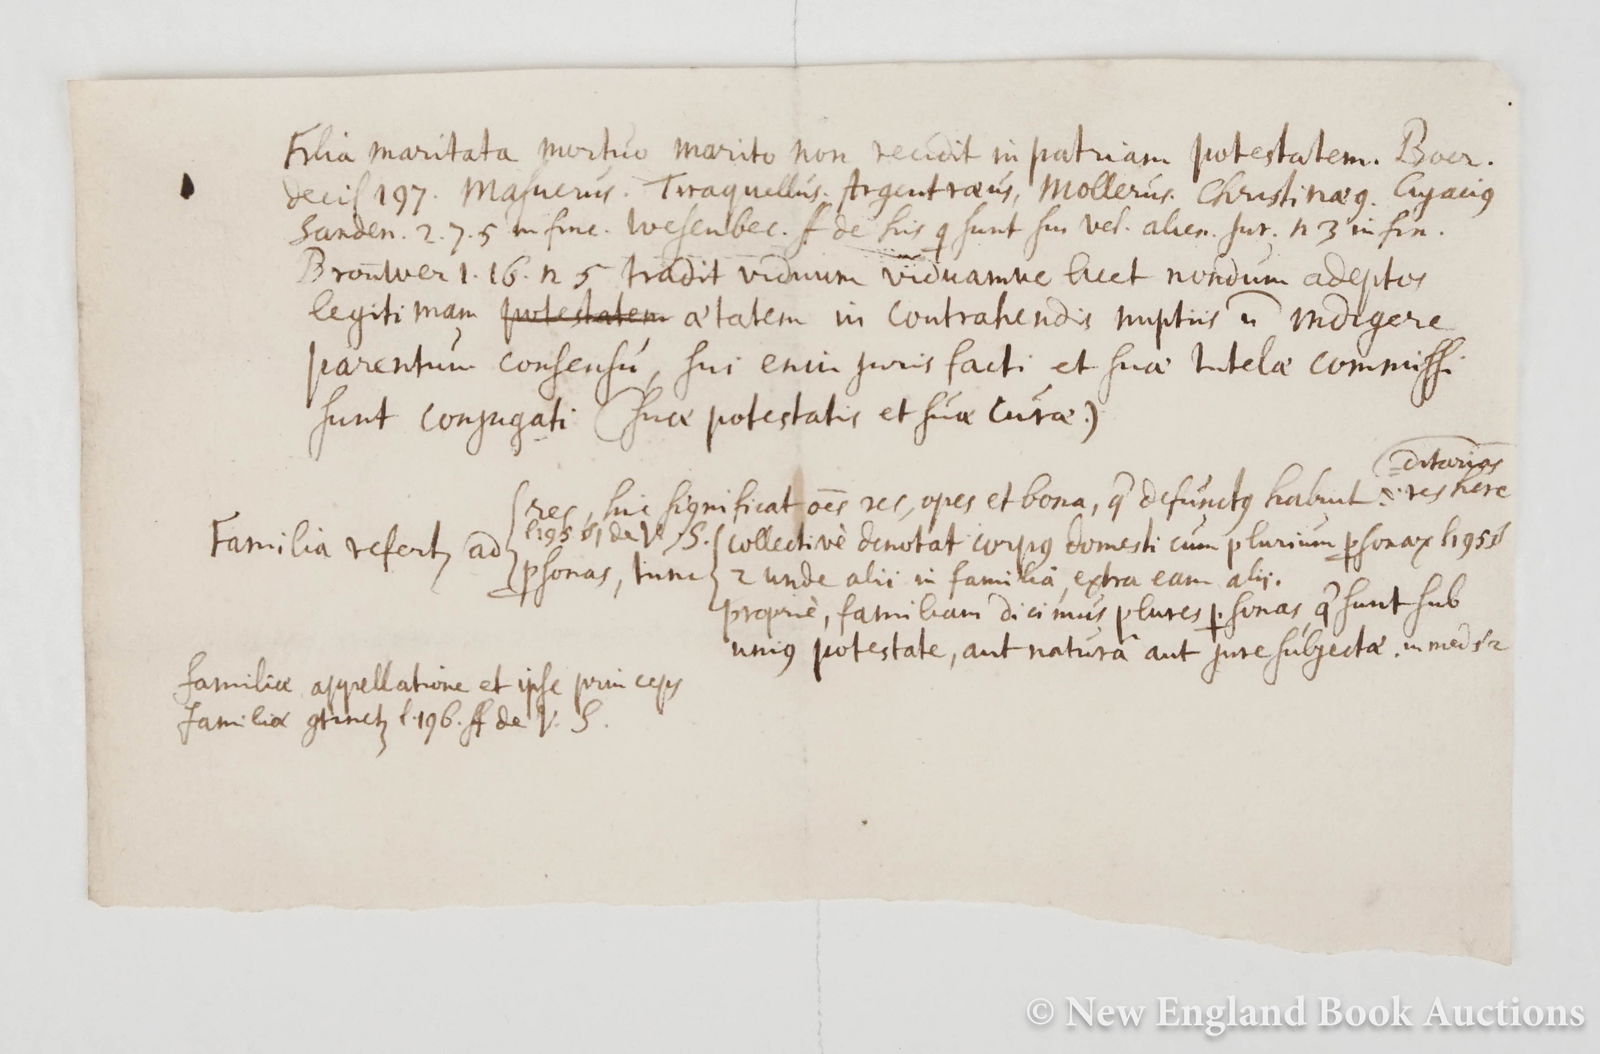 Filia maritata mortuo marito non recidit in patriam potestatem. Boer.
decis 197. Masuerus. Tiraquellus. Argentræus, Mollerus. Christinæ9. Cujaci9
Sanden. 2. 7. 5 in fine. Wesenbec. ff de his q sunt sui vel. alien. Jur. n 3 in fin.
Broũwer 1. 16. n 5 tradit viduum viduamve licet nondum adeptos
legitimam potestatem ætatem in contrahendis nuptiis ñ indigere
parentum consensu, sui enim juris facti et suæ tutelæ commissi
sunt conjugati (suæ potestatis et suæ curæ.)
ditarias
res, hic significat oēs res, opes et bona, q̃ defunct9 habuit : res here
l195 §1 de V. S.
Familia refertʒ ad
collectivè denotat corp9 domesticum plurium psonaꝝ l195 §
psonas, tunc
2 unde alii in familiâ, extra eam alii.
propriè, familiam dicimus plures psonas, q̃ sunt sub
uni9 potestate, aut naturâ aut jure subjectæ. in med §2
familiæ appellatione et ipse princeps
familiæ 9tinetʒ l.196. ff de V. S.
© New England Book Auctions